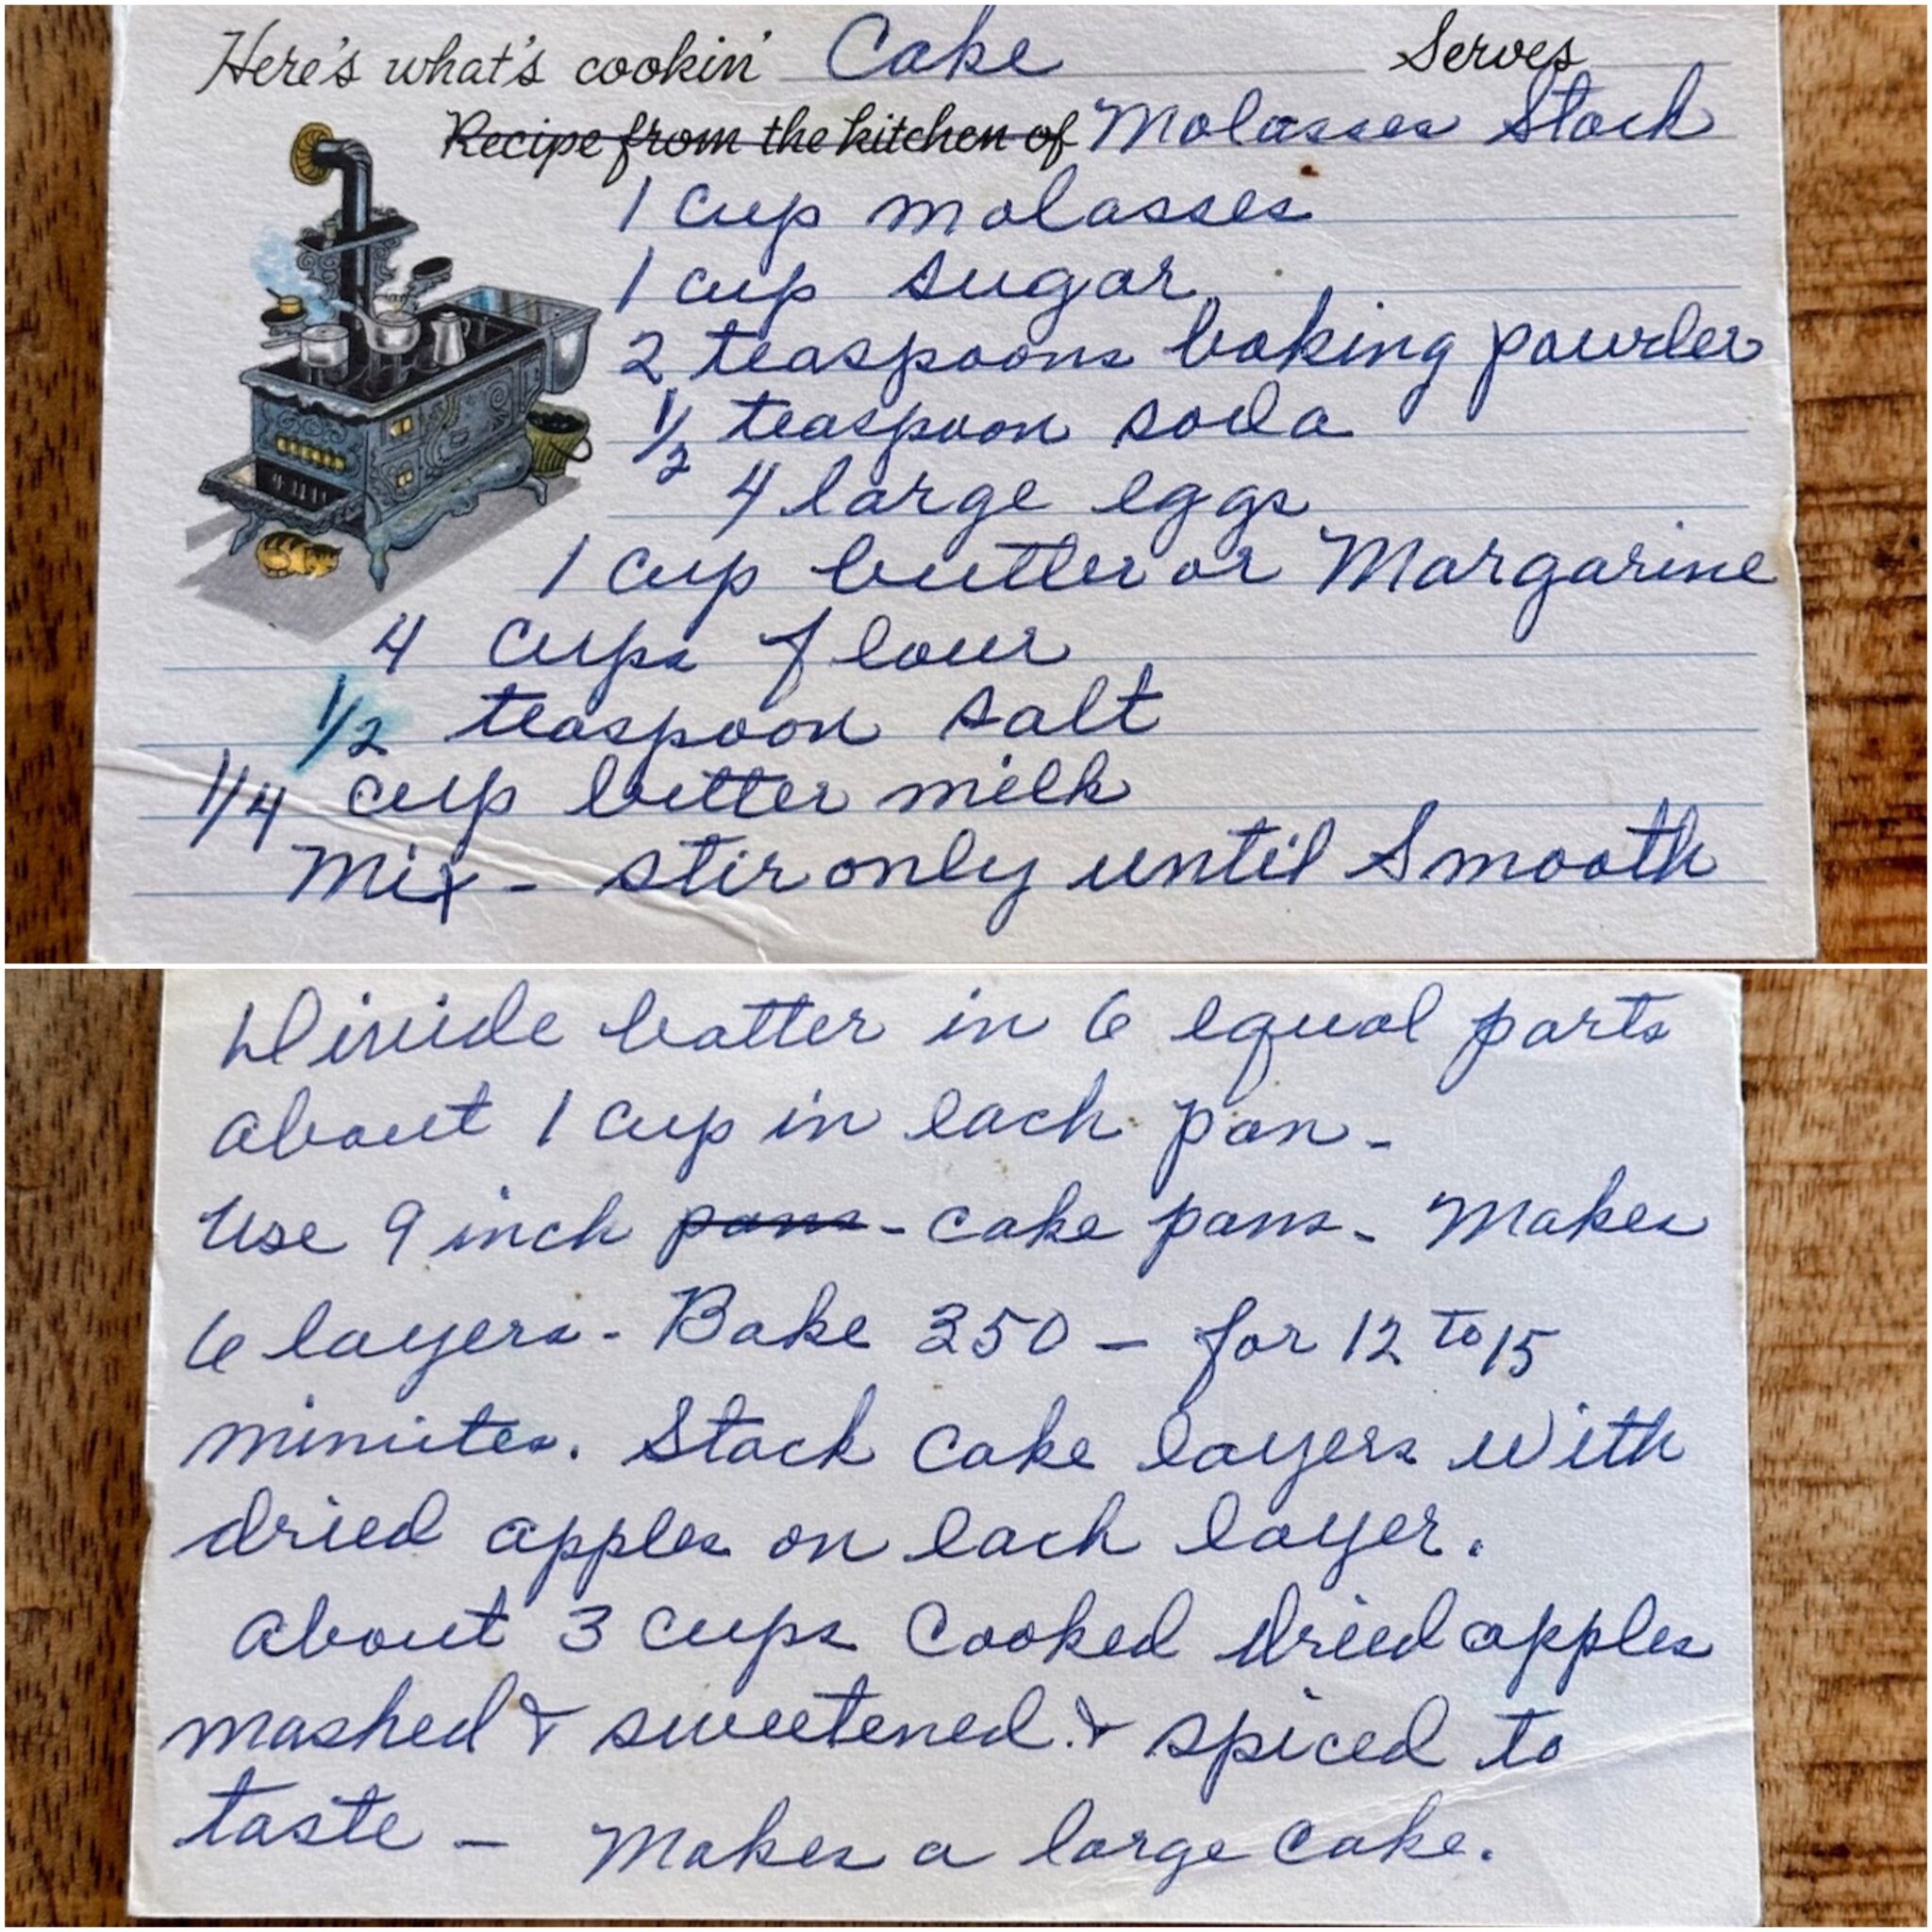 Here's what's cookin' Cake Serves
Recipe from the kitchen of Molasses Stack
1 cup molasses
1 cup sugar
2 teaspoons baking powder
1/2 teaspoon soda
4 large eggs
1 cup butter or Margarine
4 cups flour
1/2 teaspoon salt
1/4 cup butter milk
Mix - stir only until Smooth
Divide batter in 6 equal parts
about 1 cup in each pan -
Use 9 inch pans - cake pans - Makes
6 layers - Bake 350 - for 12 to 15
minutes. Stack cake layers with
dried apples on each layer.
About 3 cups cooked dried apples
mashed & sweetened & spiced to
taste - Makes a large cake.